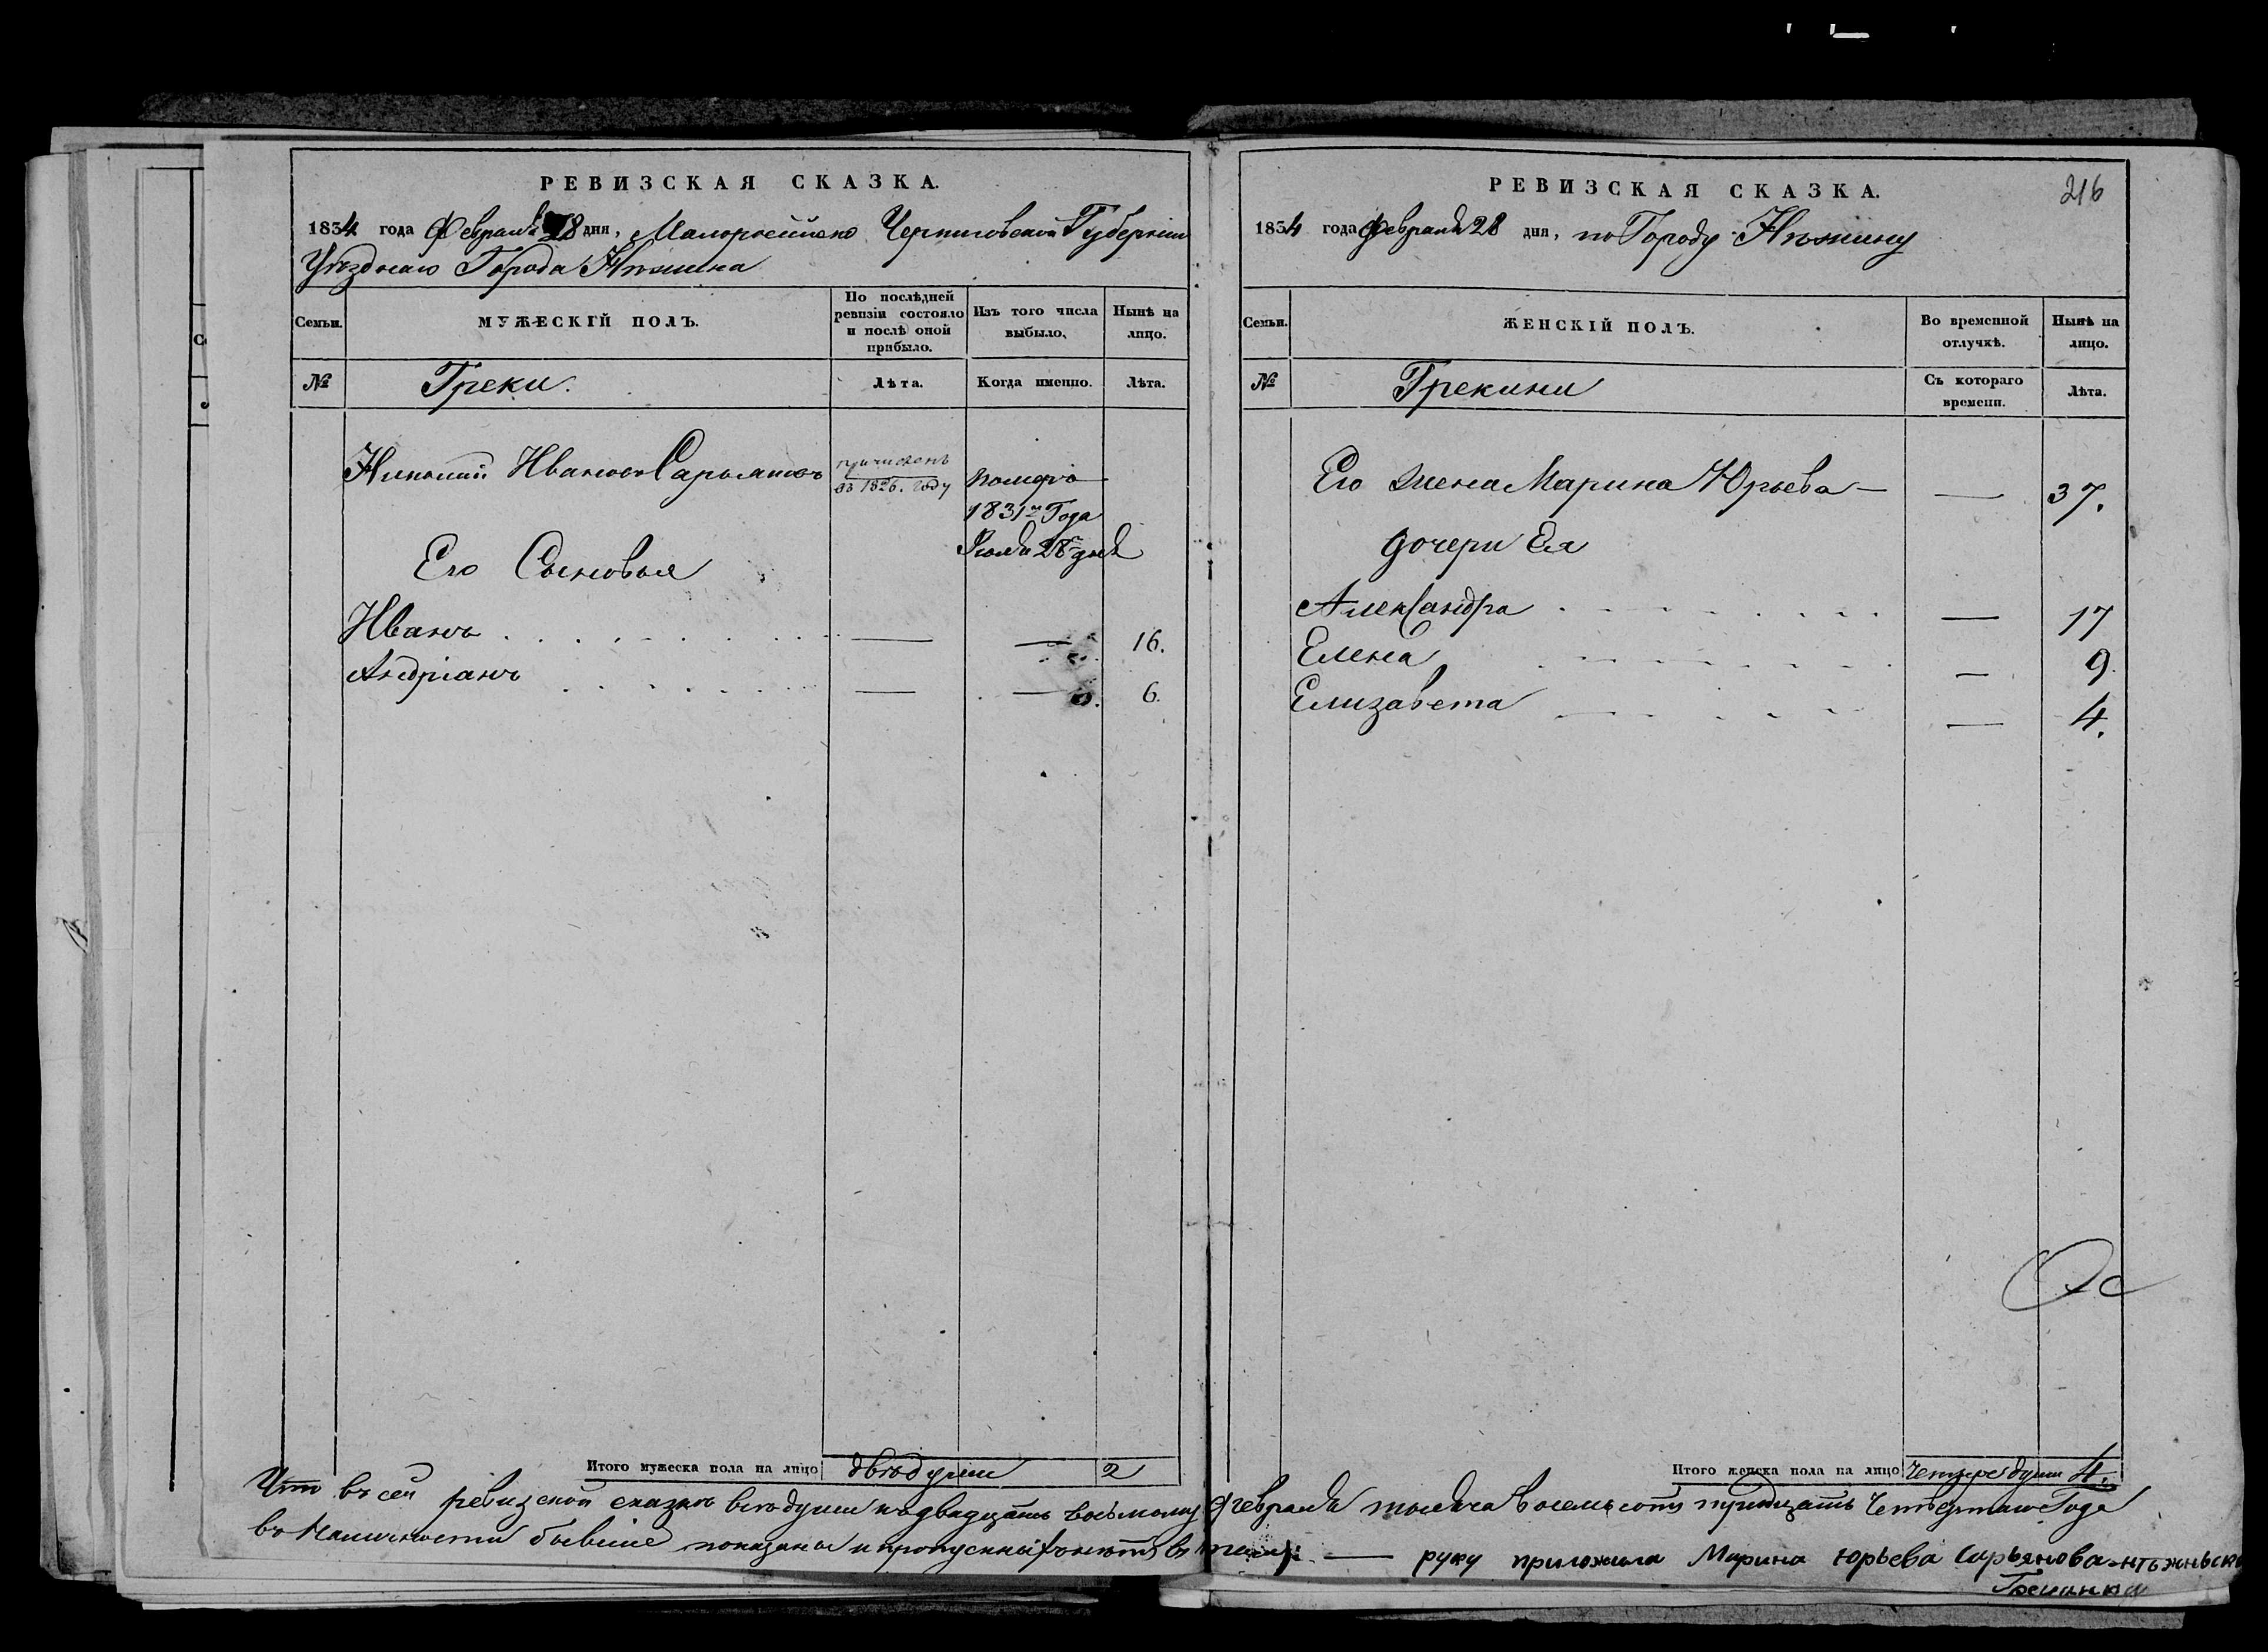 РЕВИЗСКАЯ СКАЗКА.
1834 года Февраля 28 дня, Малороссійско Черниговской Губерніи
Уѣзднаго Города Нѣжина
Семьи.
МУЖЕСКІЙ ПОЛЪ.
По послѣдней ревизіи состояло и послѣ оной прибыло.
Изъ того числа выбыло.
Нынѣ на лицо.
№
Греки.
Лѣта.
Когда именно.
Лѣта.
Николай Ивановъ Сарьяновъ
причисленъ въ 1826. году
померъ
1831го Года
Іюля 28 дня
Его Сыновья
Иванъ — — 16.
Андріанъ — — 6.
Итого мужеска пола на лицо двѣ души 2
РЕВИЗСКАЯ СКАЗКА.
216
1834 года Февраля 28 дня, по Городу Нѣжину
Семьи.
ЖЕНСКІЙ ПОЛЪ.
Во временной отлучкѣ.
Нынѣ на лицо.
№
Грекини
Съ котораго времени.
Лѣта.
Его жена Марина Юрьева — — 37.
дочери Ея
Александра — 17
Елена — 9.
Елизавета — 4.
Итого женска пола на лицо Четыре души 4.
Что въ сей ревизской сказкѣ всѣ души къ двадцать восьмому февраля тысяча восемь сотъ тридцать Четвертаго Года
въ Наличности бывшіе показаны и пропущенныхъ нѣтъ въ томъ — руку приложила Марина Юрьева Сарьянова